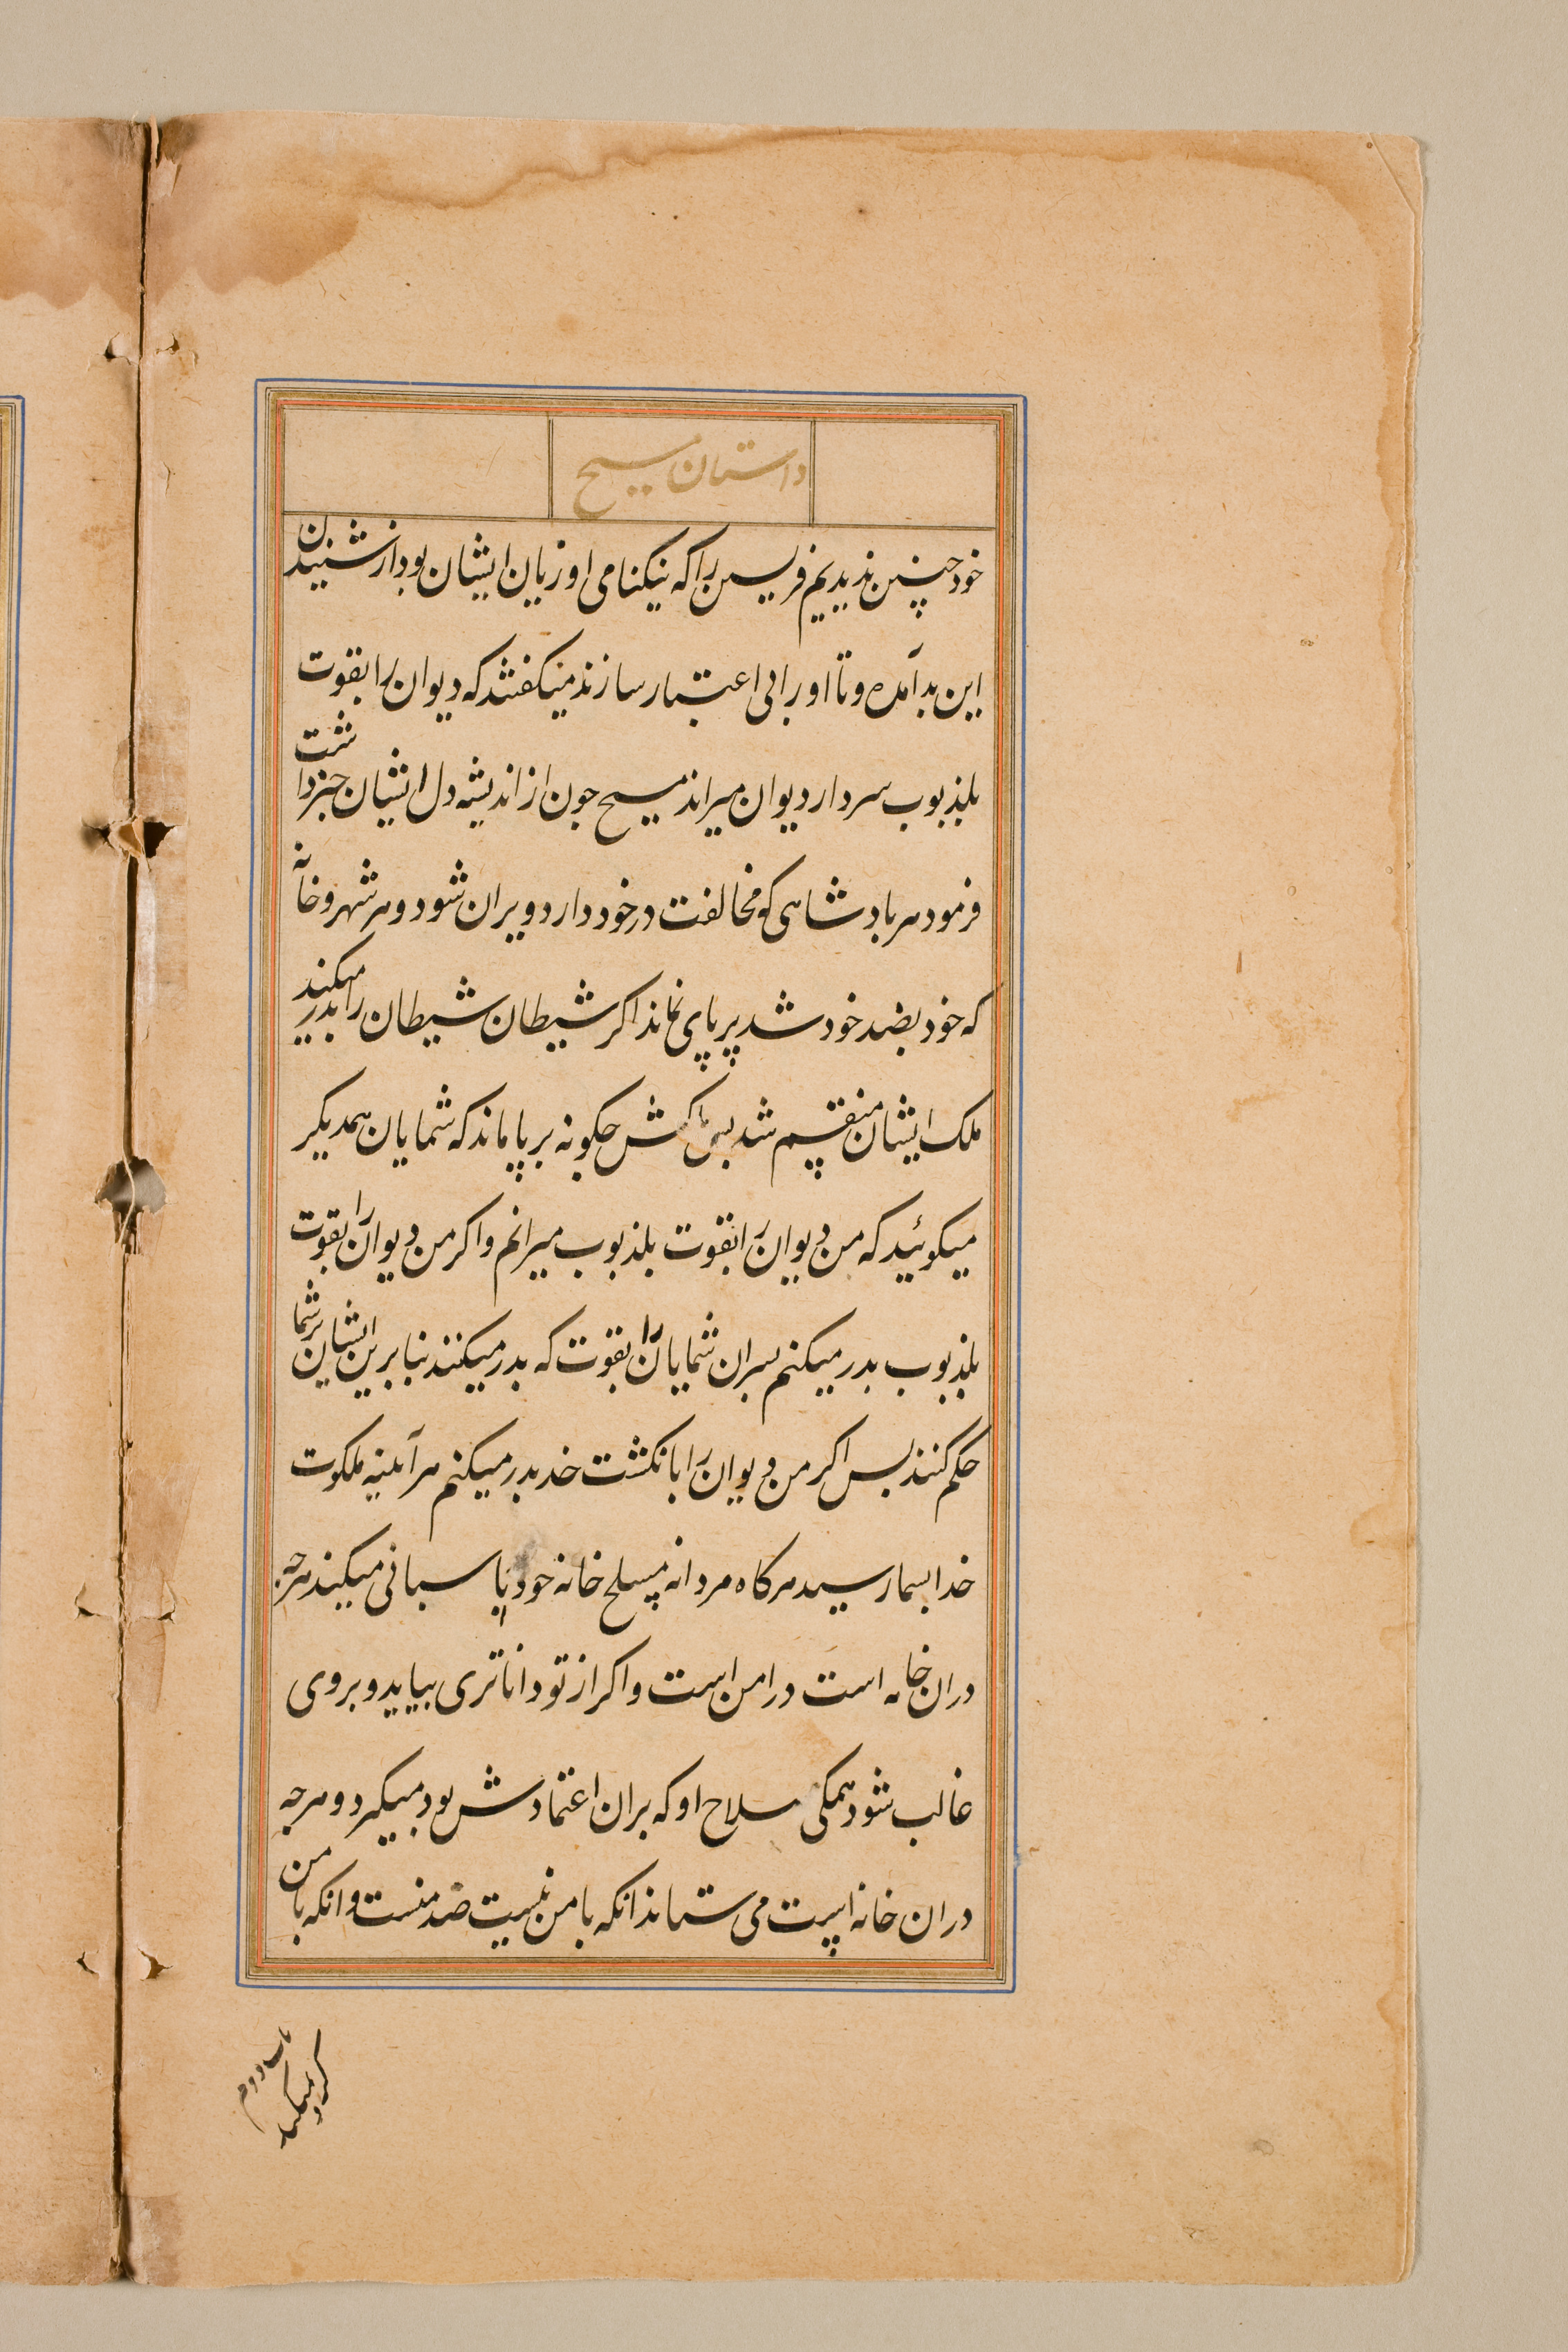 داستان مسیح
خود چنین ندیدیم فریسن را که نیکنامی او زیان ایشان بود از شنیدن
این بد آمده و تا او را بی اعتبار سازند میکفتند که دیوان را بقوت
بلذبوب سردار دیوان میراند مسیح جون از اندیشه دل ایشان خبر داشت
فرمود هر بادشاهی که مخالفت در خود دارد ویران شود و هر شهر و خانه
که خود بضد خود شد بر پای نماند اکر شیطان شیطان را بدر میکند
ملک ایشان منقسم شد بس ملکش جکونه بر پا ماند که شمایان همدیکر
میکوئید که من دیوان را بقوت بلذبوب میرانم و اکر من دیوان را بقوت
بلذبوب بدر میکنم بسران شمایان را بقوت که بدر میکنند بنا برین ایشان بر شما
حکم کنند بس اکر من دیوان را بانکشت خد بدر میکنم هر آئینه ملکوت
خدا بسما رسید هر کاه مردانه مسلح خانه خود پاسبانی میکند هر جه
در ان خانه است در امن است و اکر از تو داناتری بیاید و بر وی
غالب شود همکی سلاح او که بران اعتمادش بود میکیرد و هرجه
در ان خانه است می ستاند انکه با من نیست ضد منست و انکه با من